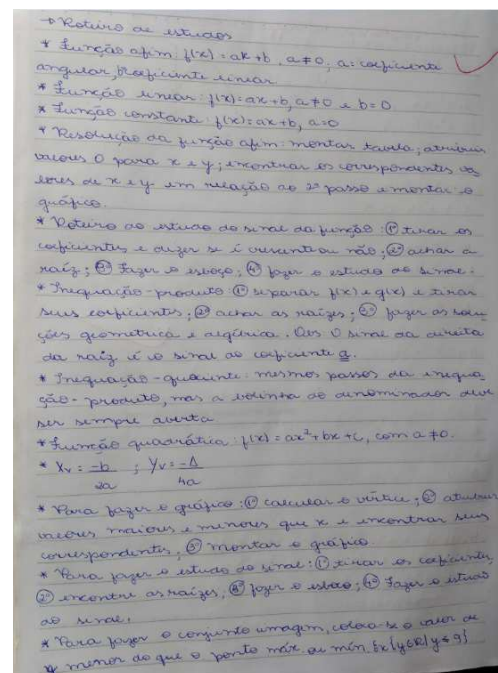 → Roteiro de estudos
* Função afim: f(x) = ax+b, a≠0; a= coeficiente
angular, b coeficiente linear.
* Função linear: f(x)= ax+b, a≠0 e b=0
* Função constante: f(x)= ax+b, a=0
* Resolução da função afim: montar tabela; atribuir
valores 0 para x e y; encontrar os correspondentes va
lores de x e y em relação ao 2º passo e montar o
gráfico.
* Roteiro do estudo do sinal da função: 1º tirar os
coeficientes e dizer se é crescente ou não; 2º achar a
raíz; 3º fazer o esboço; 4º fazer o estudo do sinal.
* Inequação-produto: 1º separar f(x) e g(x) e tirar
seus coeficientes; 2º achar as raízes; 3º fazer as solu
ções geométrica e algébrica. Obs: O sinal da direita
da raíz é o sinal do coeficiente a.
* Inequação-quociente: mesmos passos da inequa
ção-produto, mas a bolinha do denominador deve
ser sempre aberta
* Função quadrática: f(x) = ax²+bx+c, com a≠0.
* Xv = -b/2a ; Yv = -Δ/4a
* Para fazer o gráfico: 1º calcular o vértice; 2º atribuir
valores maiores e menores que x e encontrar seus
correspondentes; 3º montar o gráfico.
* Para fazer o estudo do sinal: 1º tirar os coeficientes;
2º encontre as raízes; 3º fazer o esboço; 4º fazer o estudo
do sinal.
* Para fazer o conjunto imagem, coloca-se o valor de
y menor do que o ponto máx ou mín. {x{y∈R|y≤9}